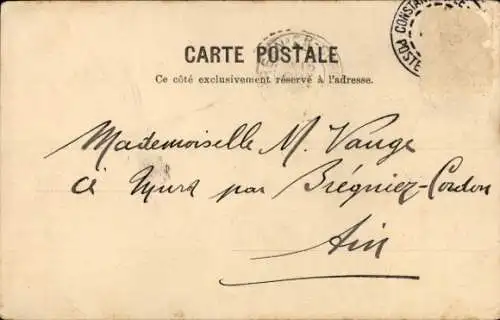 CONSTAN
POSTE
CARTE POSTALE
Ce côté exclusivement réservé à l'adresse.
Mademoiselle M. Vange
à Murs par Brégniez-Cordon
Ain